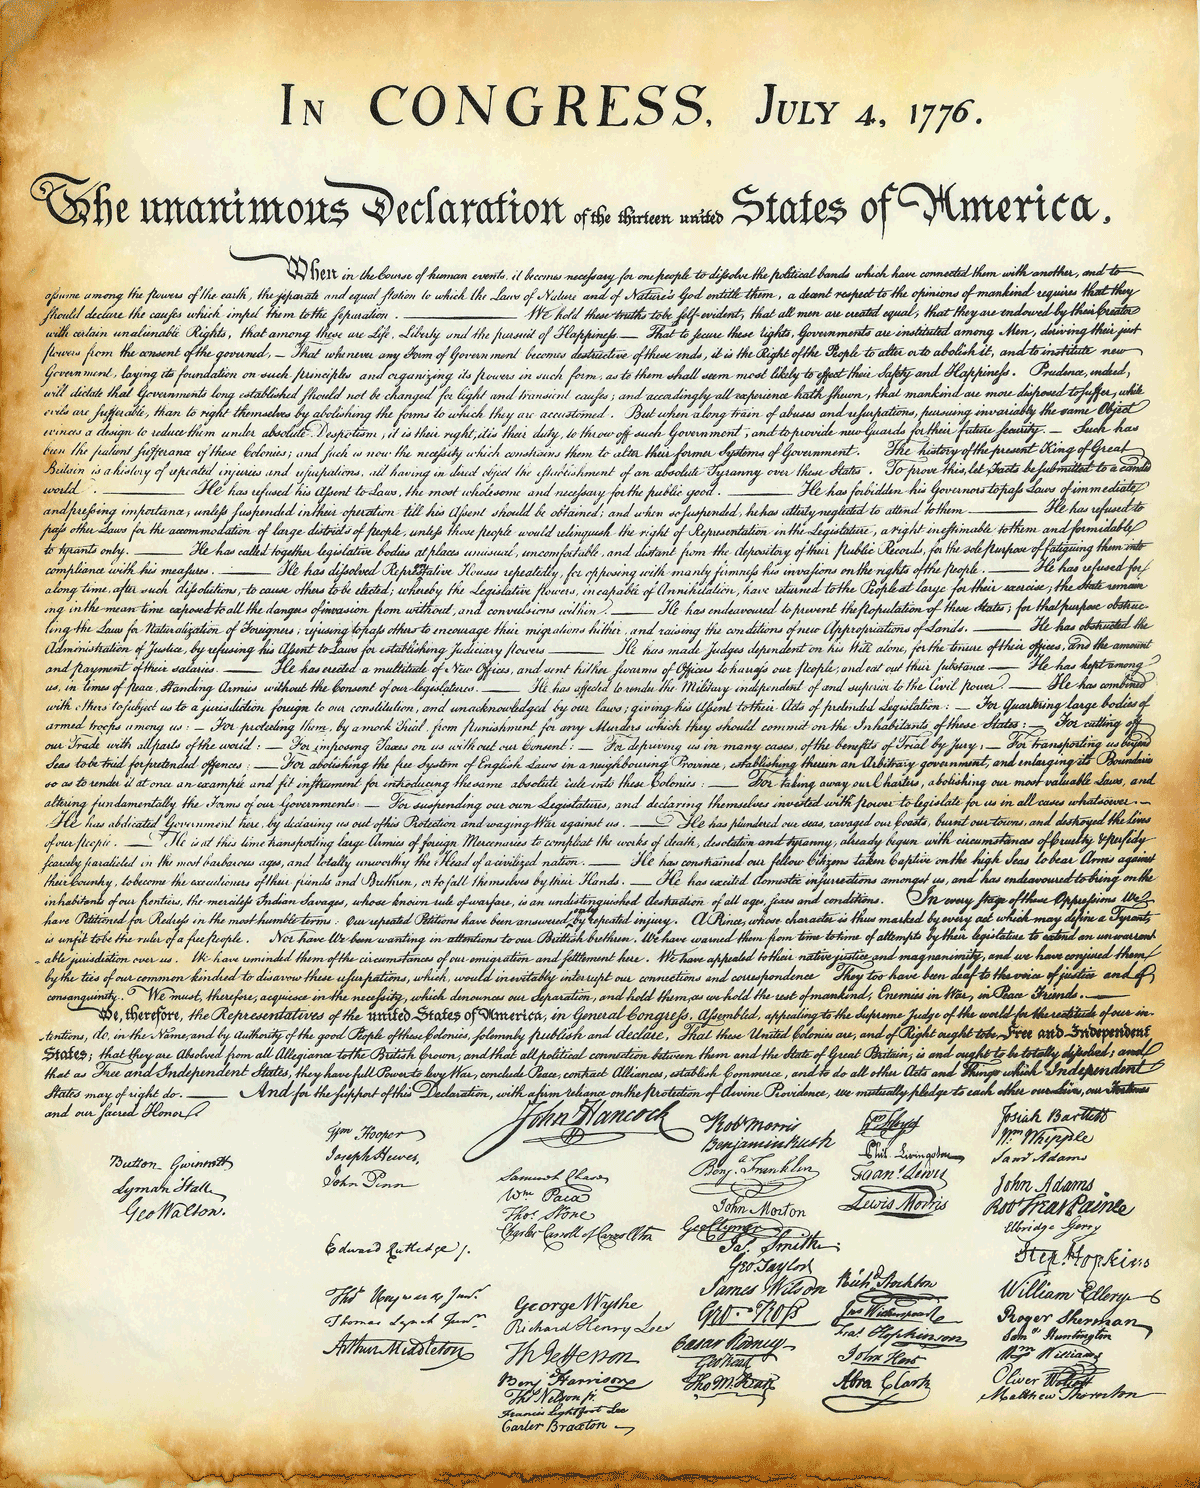 In CONGRESS, July 4, 1776.
The unanimous Declaration of the thirteen united States of America.
When in the Course of human events, it becomes necessary for one people to dissolve the political bands which have connected them with another, and to
assume among the powers of the earth, the separate and equal station to which the Laws of Nature and of Nature's God entitle them, a decent respect to the opinions of mankind requires that they
should declare the causes which impel them to the separation. — We hold these truths to be self-evident, that all men are created equal, that they are endowed by their Creator
with certain unalienable Rights, that among these are Life, Liberty and the pursuit of Happiness.— That to secure these rights, Governments are instituted among Men, deriving their just
powers from the consent of the governed,— That whenever any Form of Government becomes destructive of these ends, it is the Right of the People to alter or to abolish it, and to institute new
Government, laying its foundation on such principles and organizing its powers in such form, as to them shall seem most likely to effect their Safety and Happiness. Prudence, indeed,
will dictate that Governments long established should not be changed for light and transient causes; and accordingly all experience hath shewn, that mankind are more disposed to suffer, while
evils are sufferable, than to right themselves by abolishing the forms to which they are accustomed. But when a long train of abuses and usurpations, pursuing invariably the same Object
evinces a design to reduce them under absolute Despotism, it is their right, it is their duty, to throw off such Government, and to provide new Guards for their future security.— Such has
been the patient sufferance of these Colonies; and such is now the necessity which constrains them to alter their former Systems of Government. The history of the present King of Great
Britain is a history of repeated injuries and usurpations, all having in direct object the establishment of an absolute Tyranny over these States. To prove this, let Facts be submitted to a candid
world. — He has refused his Assent to Laws, the most wholesome and necessary for the public good. — He has forbidden his Governors to pass Laws of immediate
and pressing importance, unless suspended in their operation till his Assent should be obtained; and when so suspended, he has utterly neglected to attend to them. — He has refused to
pass other Laws for the accommodation of large districts of people, unless those people would relinquish the right of Representation in the Legislature, a right inestimable to them and formidable
to tyrants only. — He has called together legislative bodies at places unusual, uncomfortable, and distant from the depository of their Public Records, for the sole purpose of fatiguing them into
compliance with his measures. — He has dissolved Representative Houses repeatedly, for opposing with manly firmness his invasions on the rights of the people. — He has refused for
a long time, after such dissolutions, to cause others to be elected; whereby the Legislative powers, incapable of Annihilation, have returned to the People at large for their exercise; the State remain
ing in the mean time exposed to all the dangers of invasion from without, and convulsions within. — He has endeavoured to prevent the population of these States; for that purpose obstruc-
ting the Laws for Naturalization of Foreigners; refusing to pass others to encourage their migrations hither, and raising the conditions of new Appropriations of Lands. — He has obstructed the
Administration of Justice, by refusing his Assent to Laws for establishing Judiciary powers — He has made Judges dependent on his Will alone, for the tenure of their offices, and the amount
and payment of their salaries. — He has erected a multitude of New Offices, and sent hither swarms of Officers to harrass our people, and eat out their substance. — He has kept among
us, in times of peace, Standing Armies without the Consent of our legislatures. — He has affected to render the Military independent of and superior to the Civil power. — He has combined
with others to subject us to a jurisdiction foreign to our constitution, and unacknowledged by our laws; giving his Assent to their Acts of pretended Legislation: — For Quartering large bodies of
armed troops among us: — For protecting them, by a mock Trial, from punishment for any Murders which they should commit on the Inhabitants of these States: — For cutting off
our Trade with all parts of the world: — For imposing Taxes on us without our Consent: — For depriving us in many cases, of the benefits of Trial by Jury; — For transporting us beyond
Seas to be tried for pretended offences: — For abolishing the free System of English Laws in a neighbouring Province, establishing therein an Arbitrary government, and enlarging its Boundaries
so as to render it at once an example and fit instrument for introducing the same absolute rule into these Colonies: — For taking away our Charters, abolishing our most valuable Laws, and
altering fundamentally the Forms of our Governments: — For suspending our own Legislatures, and declaring themselves invested with power to legislate for us in all cases whatsoever.—
He has abdicated Government here, by declaring us out of his Protection and waging War against us. — He has plundered our seas, ravaged our Coasts, burnt our towns, and destroyed the lives
of our people. — He is at this time transporting large Armies of foreign Mercenaries to compleat the works of death, desolation and tyranny, already begun with circumstances of Cruelty & perfidy
scarcely paralleled in the most barbarous ages, and totally unworthy the Head of a civilized nation. — He has constrained our fellow Citizens taken Captive on the high Seas to bear Arms against
their Country, to become the executioners of their friends and Brethren, or to fall themselves by their Hands. — He has excited domestic insurrections amongst us, and has endeavoured to bring on the
inhabitants of our frontiers, the merciless Indian Savages, whose known rule of warfare, is an undistinguished destruction of all ages, sexes and conditions. In every stage of these Oppressions We
have Petitioned for Redress in the most humble terms: Our repeated Petitions have been answered only by repeated injury. A Prince, whose character is thus marked by every act which may define a Tyrant,
is unfit to be the ruler of a free people. Nor have We been wanting in attentions to our Brittish brethren. We have warned them from time to time of attempts by their legislature to extend an unwarrant
able jurisdiction over us. We have reminded them of the circumstances of our emigration and settlement here. We have appealed to their native justice and magnanimity, and we have conjured them
by the ties of our common kindred to disavow these usurpations, which, would inevitably interrupt our connections and correspondence They too have been deaf to the voice of justice and of
consanguinity. We must, therefore, acquiesce in the necessity, which denounces our Separation, and hold them, as we hold the rest of mankind, Enemies in War, in Peace Friends.—
We, therefore, the Representatives of the united States of America, in General Congress, Assembled, appealing to the Supreme Judge of the world for the rectitude of our in-
tentions, do, in the Name, and by Authority of the good People of these Colonies, solemnly publish and declare, That these United Colonies are, and of Right ought to be Free and Independent
States; that they are Absolved from all Allegiance to the British Crown, and that all political connection between them and the State of Great Britain, is and ought to be totally dissolved; and
that as Free and Independent States, they have full Power to levy War, conclude Peace, contract Alliances, establish Commerce, and to do all other Acts and Things which Independent
States may of right do. — And for the support of this Declaration, with a firm reliance on the protection of divine Providence, we mutually pledge to each other our Lives, our Fortunes
and our sacred Honor
Button Gwinnett
Lyman Hall
Geo Walton.
Wm Hooper
Joseph Hewes,
John Penn
Edward Rutledge /.
Thos Heyward Junr.
Thomas Lynch Junr.
Arthur Middleton
John Hancock
Samuel Chase
Wm Paca
Thos Stone
Charles Carroll of Carrollton
George Wythe
Richard Henry Lee
Th Jefferson
Benj Harrison
Thos Nelson jr.
Francis Lightfoot Lee
Carter Braxton
Robt Morris
Benjamin Rush
Benj. Franklin
John Morton
Geo Clymer
Jas. Smith
Geo. Taylor
James Wilson
Geo. Ross
Caesar Rodney
Geo Read
Tho M:Kean
Wm Floyd
Phil. Livingston
Frans. Lewis
Lewis Morris
Richd. Stockton
Jno Witherspoon
Fras. Hopkinson
John Hart
Abra Clark
Josiah Bartlett
Wm Whipple
Saml Adams
John Adams
Robt Treat Paine
Elbridge Gerry
Step. Hopkins
William Ellery
Roger Sherman
Saml Huntington
Wm Williams
Oliver Wolcott
Matthew Thornton